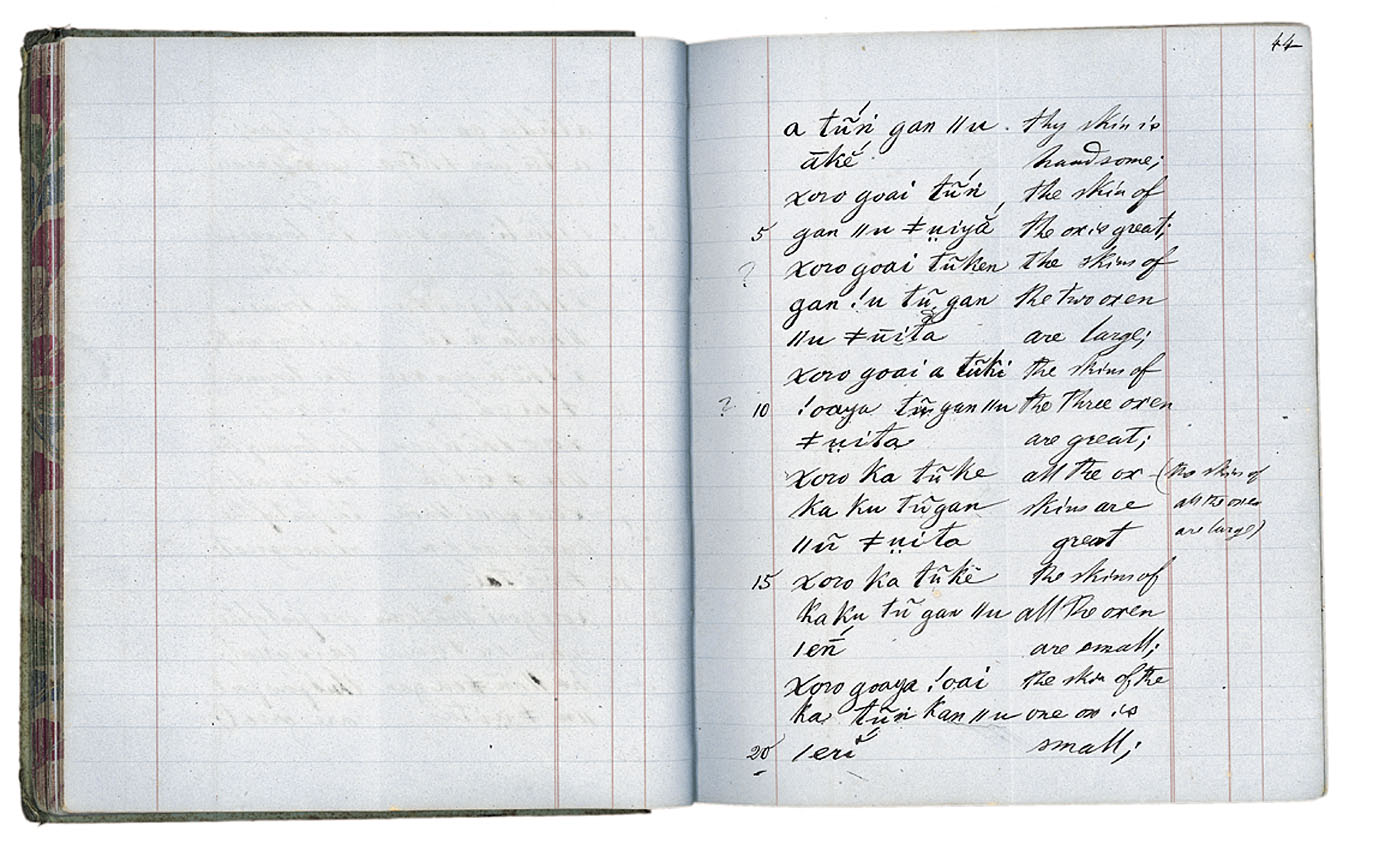 44
a tũṅ gan ǁu . thy skin is
ākĕ handsome;
xoro goai tũṅ, the skin of
5 gan ǁu ǂṳiyă the ox is great;
? xoro goai tũken the skins of
gan !u tũ gan the two oxen
ǁu ǂṳita are large;
xoro goai a tũki the skins of
? 10 !oaya tũgan ǁu the three oxen
ǂṳita are great;
xoro ka tũke all the ox - (the skins of
ka ku tũgan skins are all the oxen
ǁũ ǂṳita great are large)
15 xoro ka tũkĕ the skins of
ka ku tũ gan ǁu all the oxen
ǀeñ́ are small;
xoro goaya !oai the skin of the
ka tũṅ kan ǁu one ox is
20 ǀeri small;